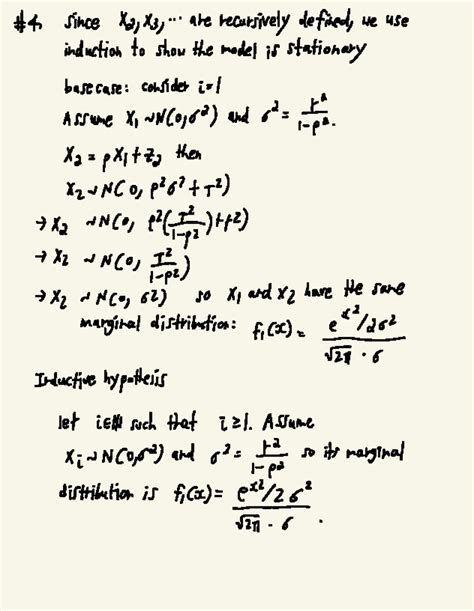 #4. Since X₂, X₃, ... are recursively defined, we use
induction to show the model is stationary
base case: consider i=1
Assume X₁ ~ N(0, σ²) and σ² = τ²/(1-ρ²).
X₂ = ρX₁ + Z₂ then
X₂ ~ N(0, ρ²σ² + τ²)
→ X₂ ~ N(0, ρ²(τ²/(1-ρ²)) + τ²)
→ X₂ ~ N(0, τ²/(1-ρ²))
→ X₂ ~ N(0, σ²) so X₁ and X₂ have the same
marginal distribution: f₁(x) = e^(x²/2σ²) / (√2π · σ)
Inductive hypothesis
let i∈ℕ such that i≥1. Assume
Xᵢ ~ N(0, σ²) and σ² = τ²/(1-ρ²) so its marginal
distribution is f₁(x) = e^(x²/2σ²) / (√2π · σ).